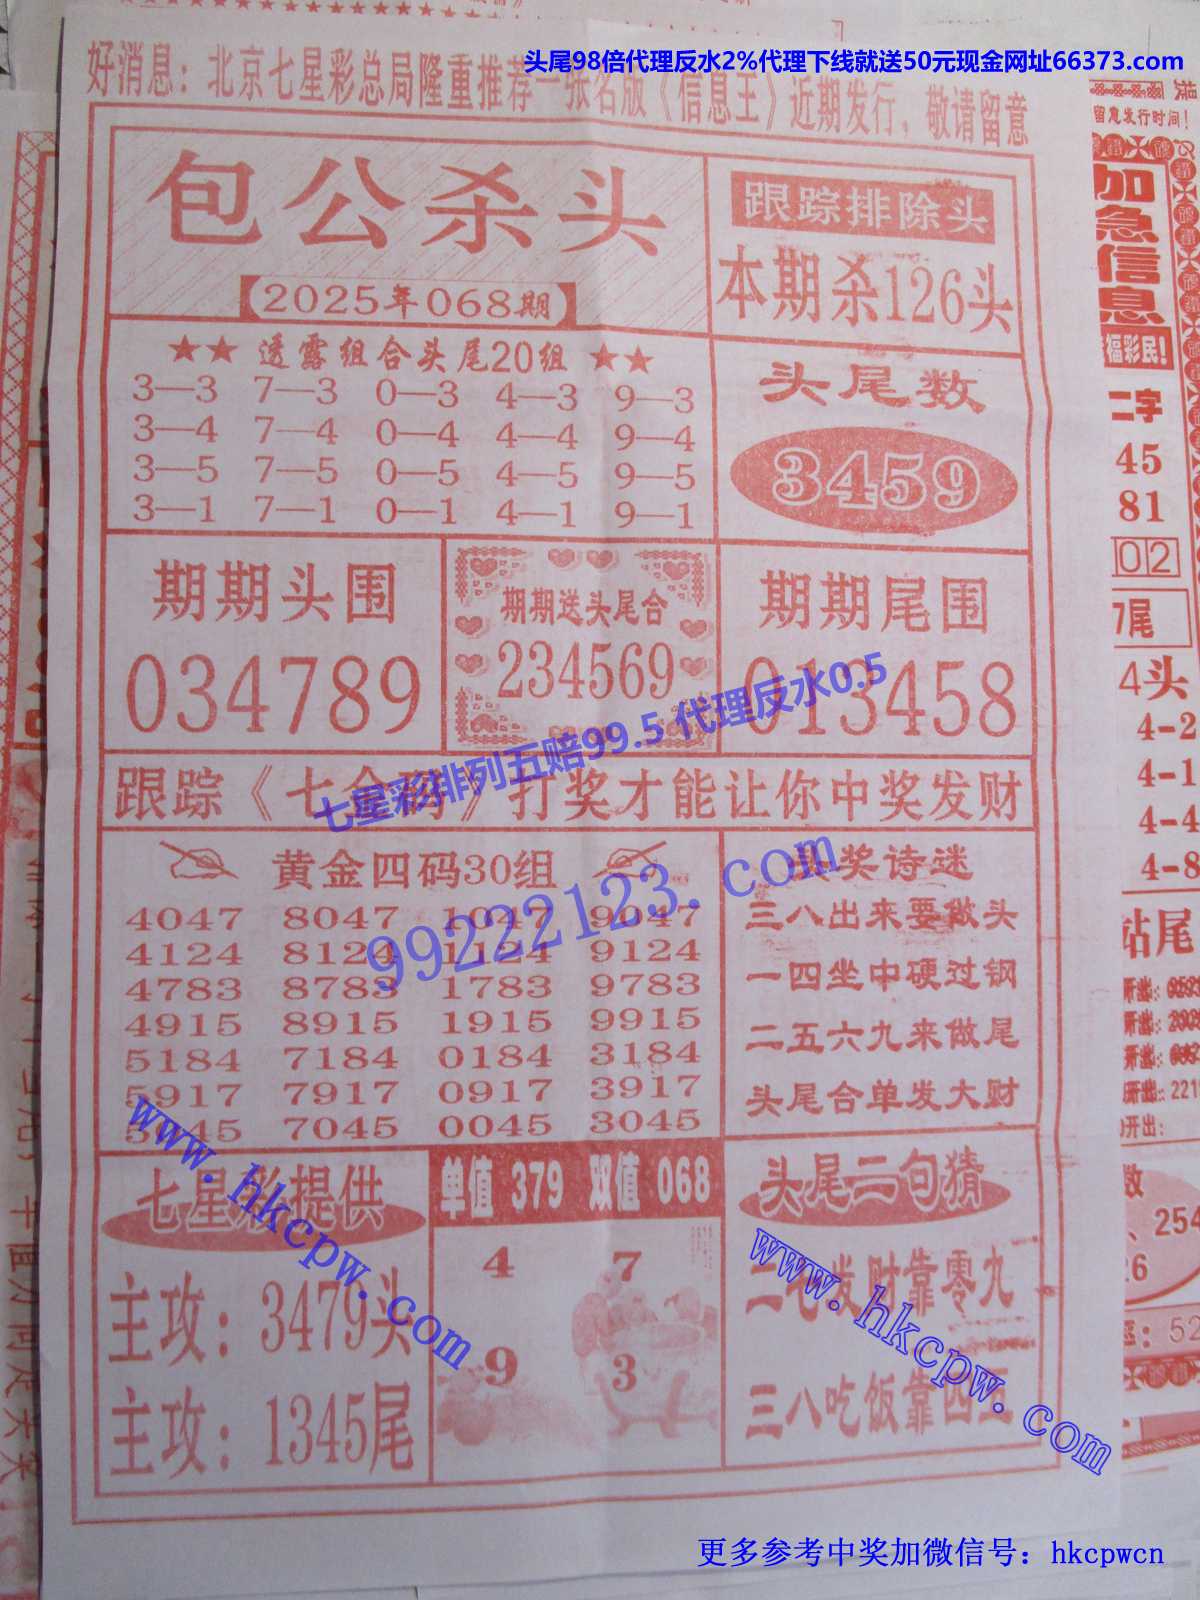 头尾98倍代理反水2%代理下线就送50元现金网址66373.com
好消息：北京七星彩总局隆重推荐一张名版《信息王》近期发行，敬请留意
包公杀头
【2025年068期】
跟踪排除头
本期杀126头
★★ 透露组合头尾20组 ★★
3—3 7—3 0—3 4—3 9—3
3—4 7—4 0—4 4—4 9—4
3—5 7—5 0—5 4—5 9—5
3—1 7—1 0—1 4—1 9—1
头尾数
3459
期期头围
034789
期期送头尾合
234569
期期尾围
013458
七星彩排列五赔99.5 代理反水0.5
跟踪《七金码》打奖才能让你中奖发财
黄金四码30组
4047 8047 1047 9047
4124 8124 1124 9124
4783 8783 1783 9783
4915 8915 1915 9915
5184 7184 0184 3184
5917 7917 0917 3917
5045 7045 0045 3045
99222123.com
头奖诗迷
三八出来要做头
一四坐中硬过钢
二五六九来做尾
头尾合单发大财
七星彩提供
主攻：3479头
主攻：1345尾
www.hkcpw.com
单值 379 双值 068
4 7
9 3
头尾二句猜
二七发财靠零九
三八吃饭靠四五
www.hkcpw.com
留意发行时间！
加急信息
福彩民！
二字
45
81
02
7尾
4头
4-2
4-1
4-4
4-8
站尾
开出：
2218
开出：
数
、254
26
52
更多参考中奖加微信号：hkcpwcn